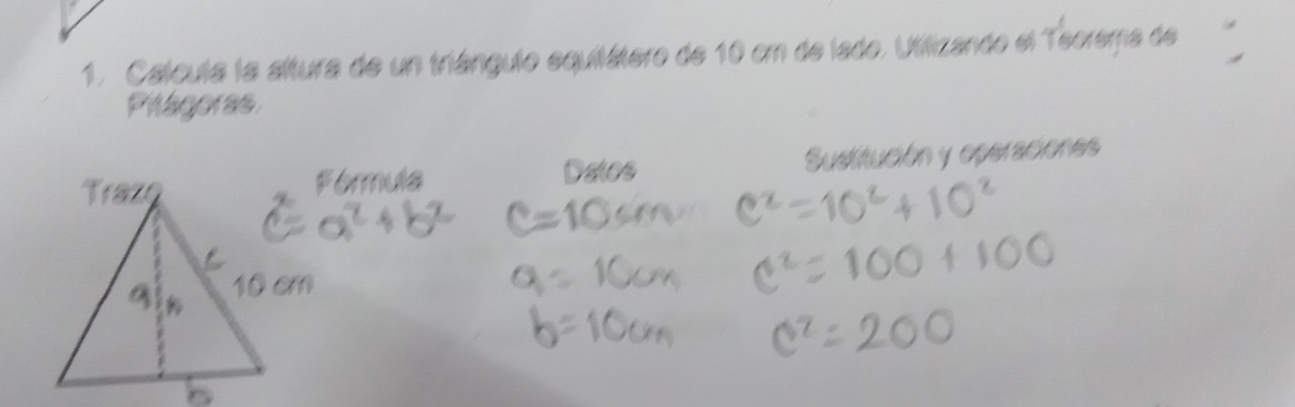 1. Calcula la altura de un triángulo equilátero de 10 cm de lado. Utilizando el Teorema de
Pitágoras.
Trazo
Fórmula
Datos
Sustitución y operaciones
c²=a²+b²
c=10cm
c²=10²+10²
c
10 cm
a
h
a=10cm
c²=100+100
b=10cm
c²=200
b